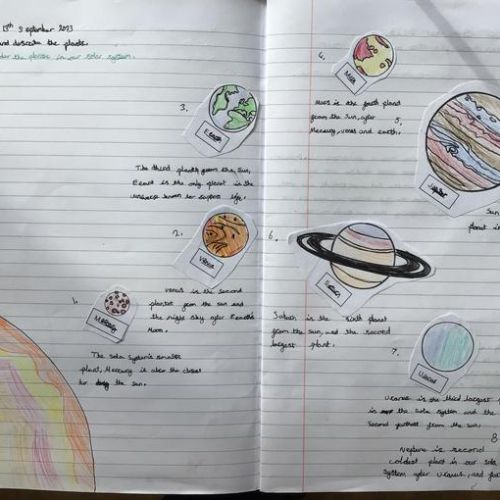 13th September 2023
and describe the planets.
order the planets in our solar system.
3.
Earth
The third planet from the Sun,
Earth is the only planet in the
universe known to support life.
2.
Venus
Venus is the second
planet from the Sun and
the night sky after Earth's
Moon.
1.
Mercury
The solar system's smallest
planet, Mercury is also the closest
to the Sun.
4.
Mars
Mars is the fourth planet
from the Sun, after
Mercury, Venus and Earth.
5.
Jupiter
planet in
6.
Saturn
Saturn is the sixth planet
from the Sun, and the second
largest planet.
7.
Uranus
Uranus is the third largest
in the solar system and the
second furthest from the Sun.
8
Neptune is second
coldest planet in our sola
system after Uranus, and